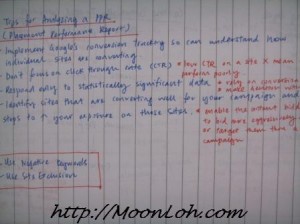 Tips for Analyzing a PPR
(Placement Performance Report)
- Implement Google's conversion tracking so can understand how
individual sites are converting
- Don't focus on click through rate (CTR) * low CTR on a site ≠ mean
perform poorly
- Respond only to statistically significant data * rely on conversion
- Identify sites that are converting well for your campaign and
steps to ↑ your exposure on these sites.
to bid more aggressively
or target them
campaign
- Use Negative Keywords
- Use Site Exclusion
http://MoonLoh.com